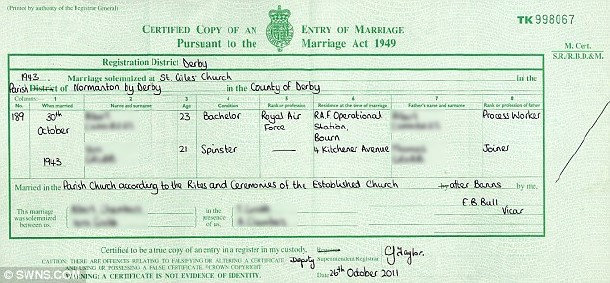 (Printed by authority of the Registrar General)
CERTIFIED COPY OF AN ENTRY OF MARRIAGE
Pursuant to the Marriage Act 1949
TK 998067
M. Cert.
S.R./R.B.D.&M.
Registration District Derby
1943. Marriage solemnized at St. Giles' Church in the
Parish District of Normanton by Derby in the County of Derby
Columns 1 2 3 4 5 6 7 8
No. When married Name and surname Age Condition Rank or profession Residence at the time of marriage Father's name and surname Rank or profession of father
189 30th 23 Bachelor Royal Air R.A.F. Operational Process Worker
October Force Station,
Bourn
21 Spinster 4 Kitchener Avenue Joiner
1943
Married in the Parish Church according to the Rites and Ceremonies of the Established Church after Banns by me,
This marriage was solemnized between us,
in the presence of us.
F.B. Bull
Vicar
Certified to be a true copy of an entry in a register in my custody,
Deputy Superintendent Registrar
G Taylor
CAUTION: THERE ARE OFFENCES RELATING TO FALSIFYING OR ALTERING A CERTIFICATE
AND USING OR POSSESSING A FALSE CERTIFICATE. ©CROWN COPYRIGHT
WARNING: A CERTIFICATE IS NOT EVIDENCE OF IDENTITY.
Date 26th October 2011
© SWNS.COM